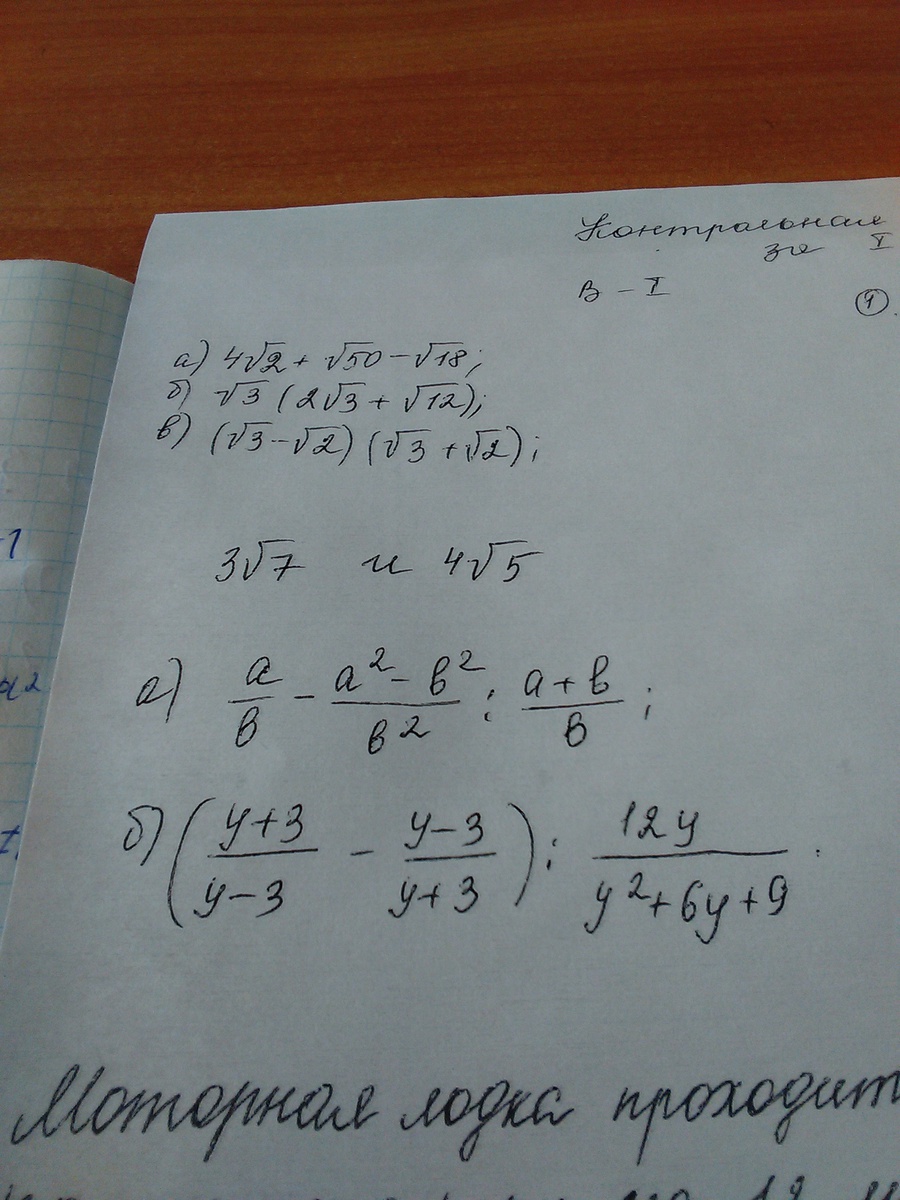 Контрольная
за I
В - I
①.
а) 4√2 + √50 - √18;
б) √3 (2√3 + √12);
в) (√3 - √2) (√3 + √2);
3√7 и 4√5
а) a/b - (a² - b²)/b² : (a + b)/b ;
б) ((y+3)/(y-3) - (y-3)/(y+3)) : 12y/(y² + 6y + 9) .
Моторная лодка проходит